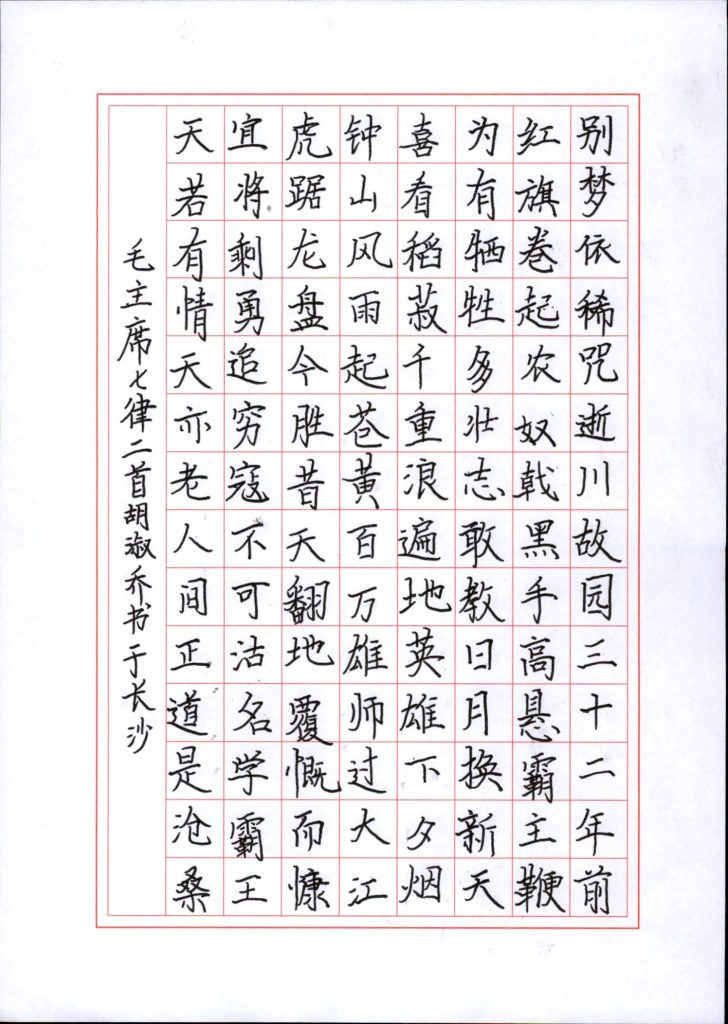 别梦依稀咒逝川故园三十二年前
红旗卷起农奴戟黑手高悬霸主鞭
为有牺牲多壮志敢教日月换新天
喜看稻菽千重浪遍地英雄下夕烟
钟山风雨起苍黄百万雄师过大江
虎踞龙盘今胜昔天翻地覆慨而慷
宜将剩勇追穷寇不可沽名学霸王
天若有情天亦老人间正道是沧桑
毛主席七律二首胡淑乔书于长沙